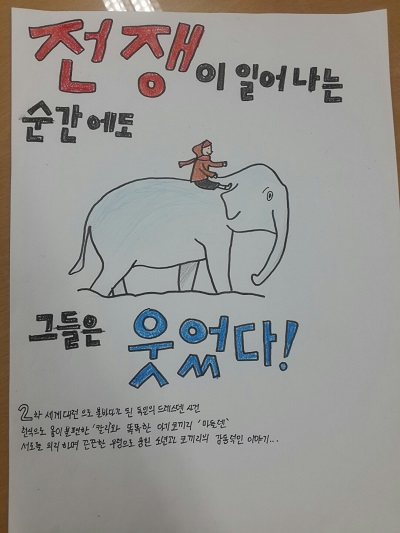 전쟁이 일어나는
순간에도
그들은 웃었다!
2차 세계대전으로 불바다가 된 독일의 드레스덴 시건
천식으로 몸이 불편한 '칼리'와 똑똑한 아기코끼리 '마들렌'
서로를 의지하며 끈끈한 우정으로 숨긴 소년과 코끼리의 감동적인 이야기...